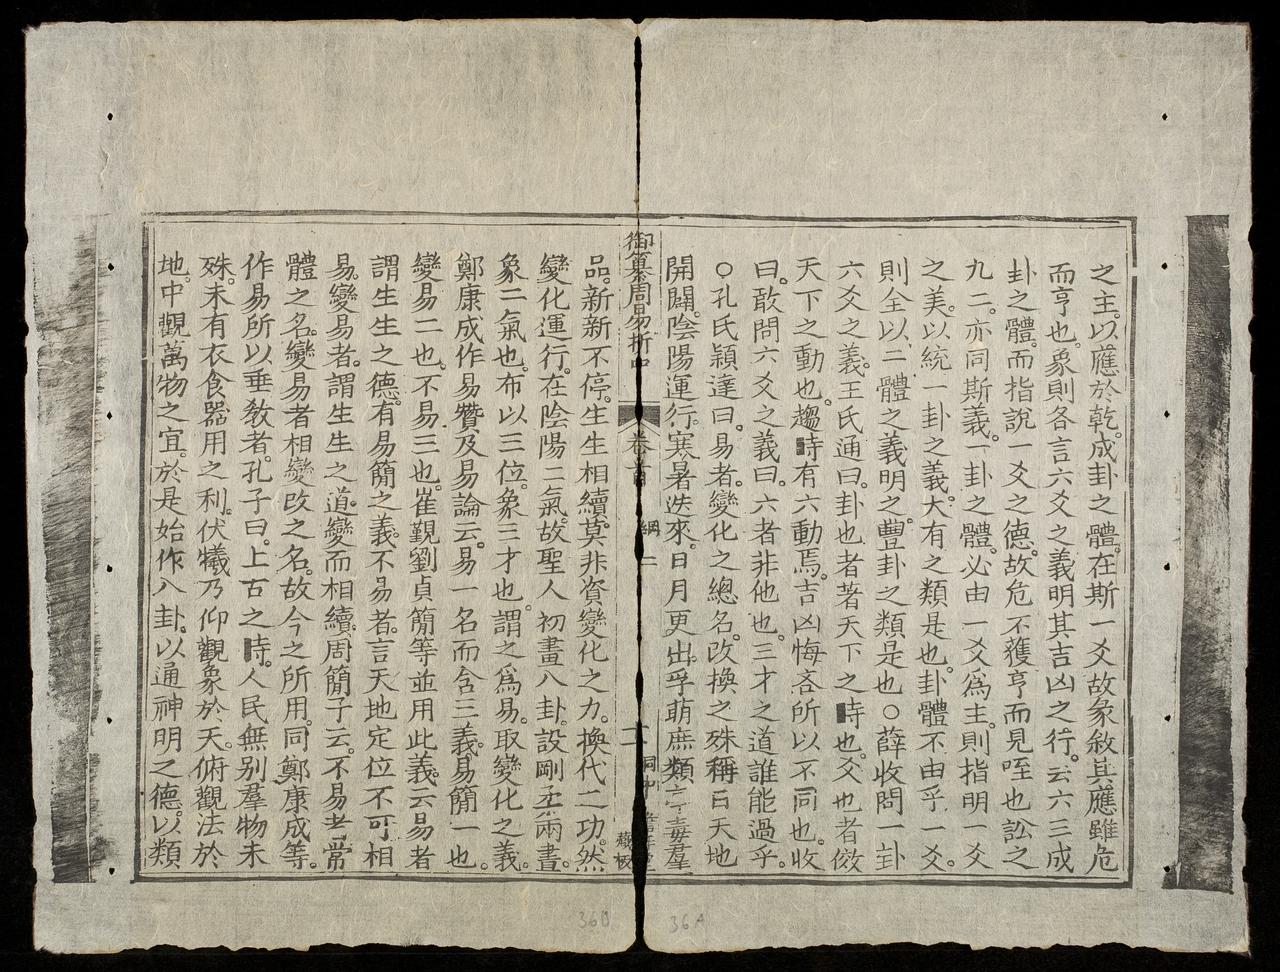 之主。以應於乾。成卦之體。在斯一爻故彖敘其應雖危
而亨也。象則各言六爻之義明其吉凶之行。云六三成
卦之體。而指說一爻之德。故危不獲亨而見咥也訟之
九二。亦同斯義。一卦之體。必由一爻爲主。則指明一爻
之美。以統一卦之義。大有之類是也。卦體不由乎一爻。
則全以二體之義明之。豐卦之類是也○薛收問一卦
六爻之義。王氏通曰。卦也者著天下之時也。爻也者傚
天下之動也。趨時有六動焉。吉凶悔吝所以不同也。收
曰。敢問六爻之義曰。六者非他也。三才之道誰能過乎。
○孔氏穎達曰。易者。變化之總名。改換之殊稱自天地
開闢。陰陽運行。寒暑迭來。日月更出。孚萌庶類。亭毒羣
御纂周易折中 卷首 綱 二
品。新新不停。生生相續。莫非資變化之力。換代二功。然
變化運行。在陰陽二氣。故聖人初畫八卦。設剛柔兩畫。
象二氣也。布以三位。象三才也。謂之爲易。取變化之義。
鄭康成作易贊及易論云。易一名而含三義。易簡一也。
變易二也。不易三也。崔覲劉貞簡等並用此義。云易者
謂生生之德。有易簡之義。不易者。言天地定位不可相
易。變易者。謂生生之道。變而相續。周簡子云。不易者常
體之名。變易者相變改之名。故今之所用。同鄭康成等。
作易所以垂敎者。孔子曰。上古之時。人民無別羣物未
殊。未有衣食器用之利。伏犧乃仰觀象於天。俯觀法於
地。中觀萬物之宜。於是始作八卦。以通神明之德。以類
36B 36A